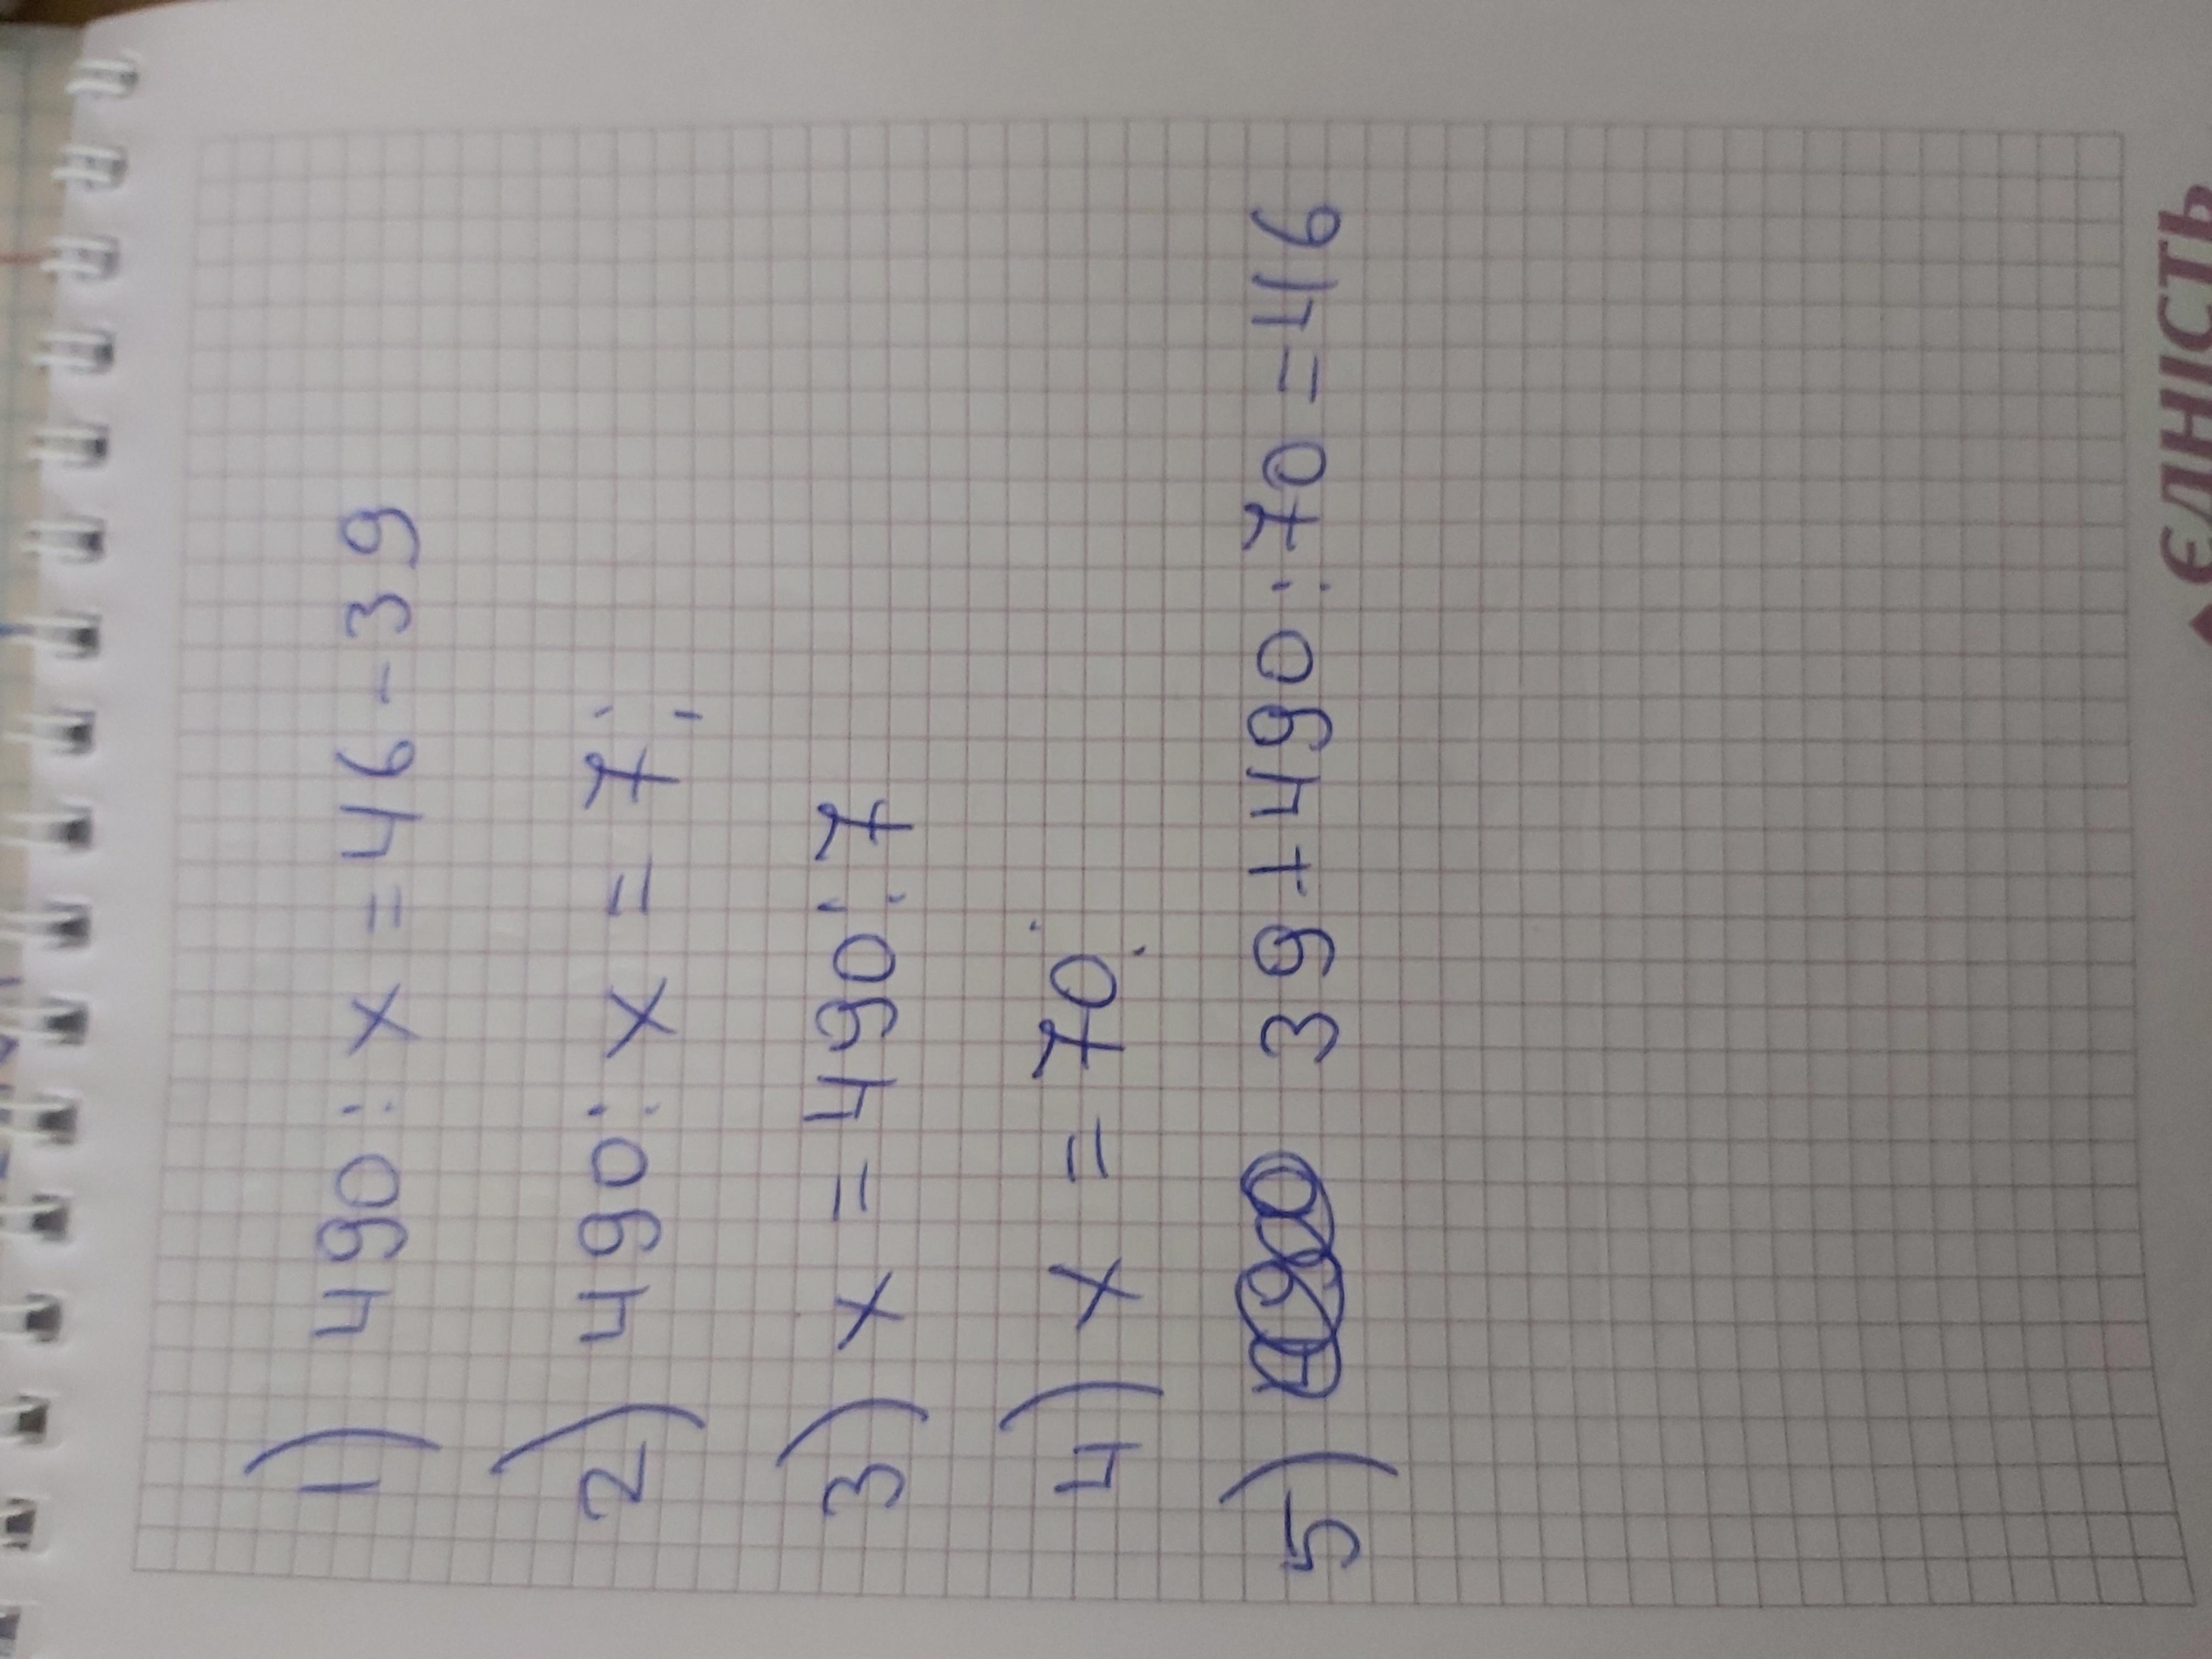 1) 490 : x = 46 - 39
2) 490 : x = 7;
3) x = 490 : 7
4) x = 70.
5) 39 + 490 : 70 = 46
ЄДНІСТЬ